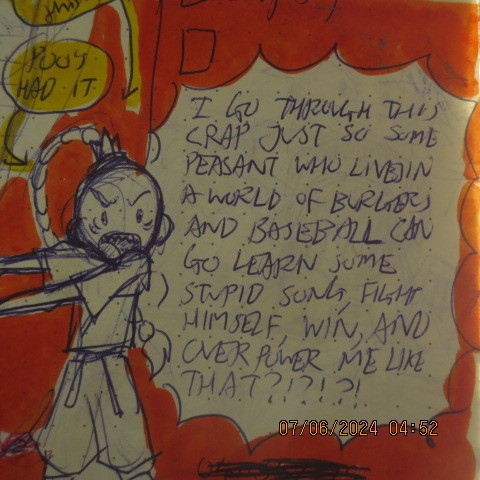 POO'S
HAD IT
I GO THROUGH THIS
CRAP JUST SO SOME
PEASANT WHO LIVES IN
A WORLD OF BURGERS
AND BASEBALL CAN
GO LEARN SOME
STUPID SONG, FIGHT
HIMSELF, WIN, AND
OVERPOWER ME LIKE
THAT?!?!?!
07/06/2024 04:52